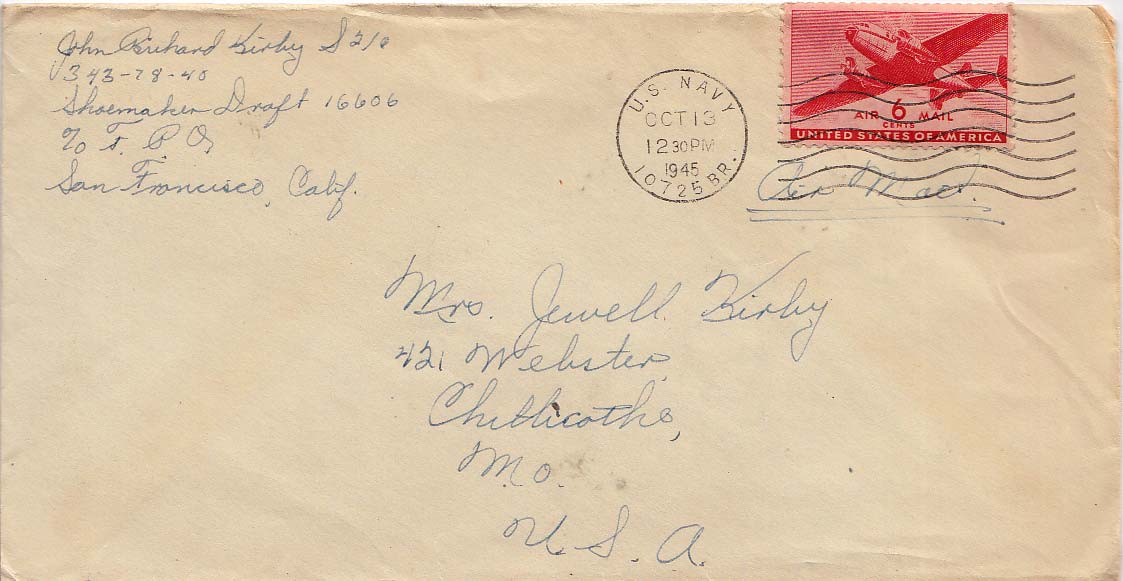 John Richard Kirby S 2/c
343-78-40
Shoemaker Draft 16606
℅ F. P. O,
San Francisco, Calif.
U.S. NAVY
OCT 13
12 30 PM
1945
10725 BR.
AIR 6 MAIL
CENTS
UNITED STATES OF AMERICA
Air Mail
Mrs. Jewell Kirby
421 Webster
Chillicothe,
Mo.
U. S. A.